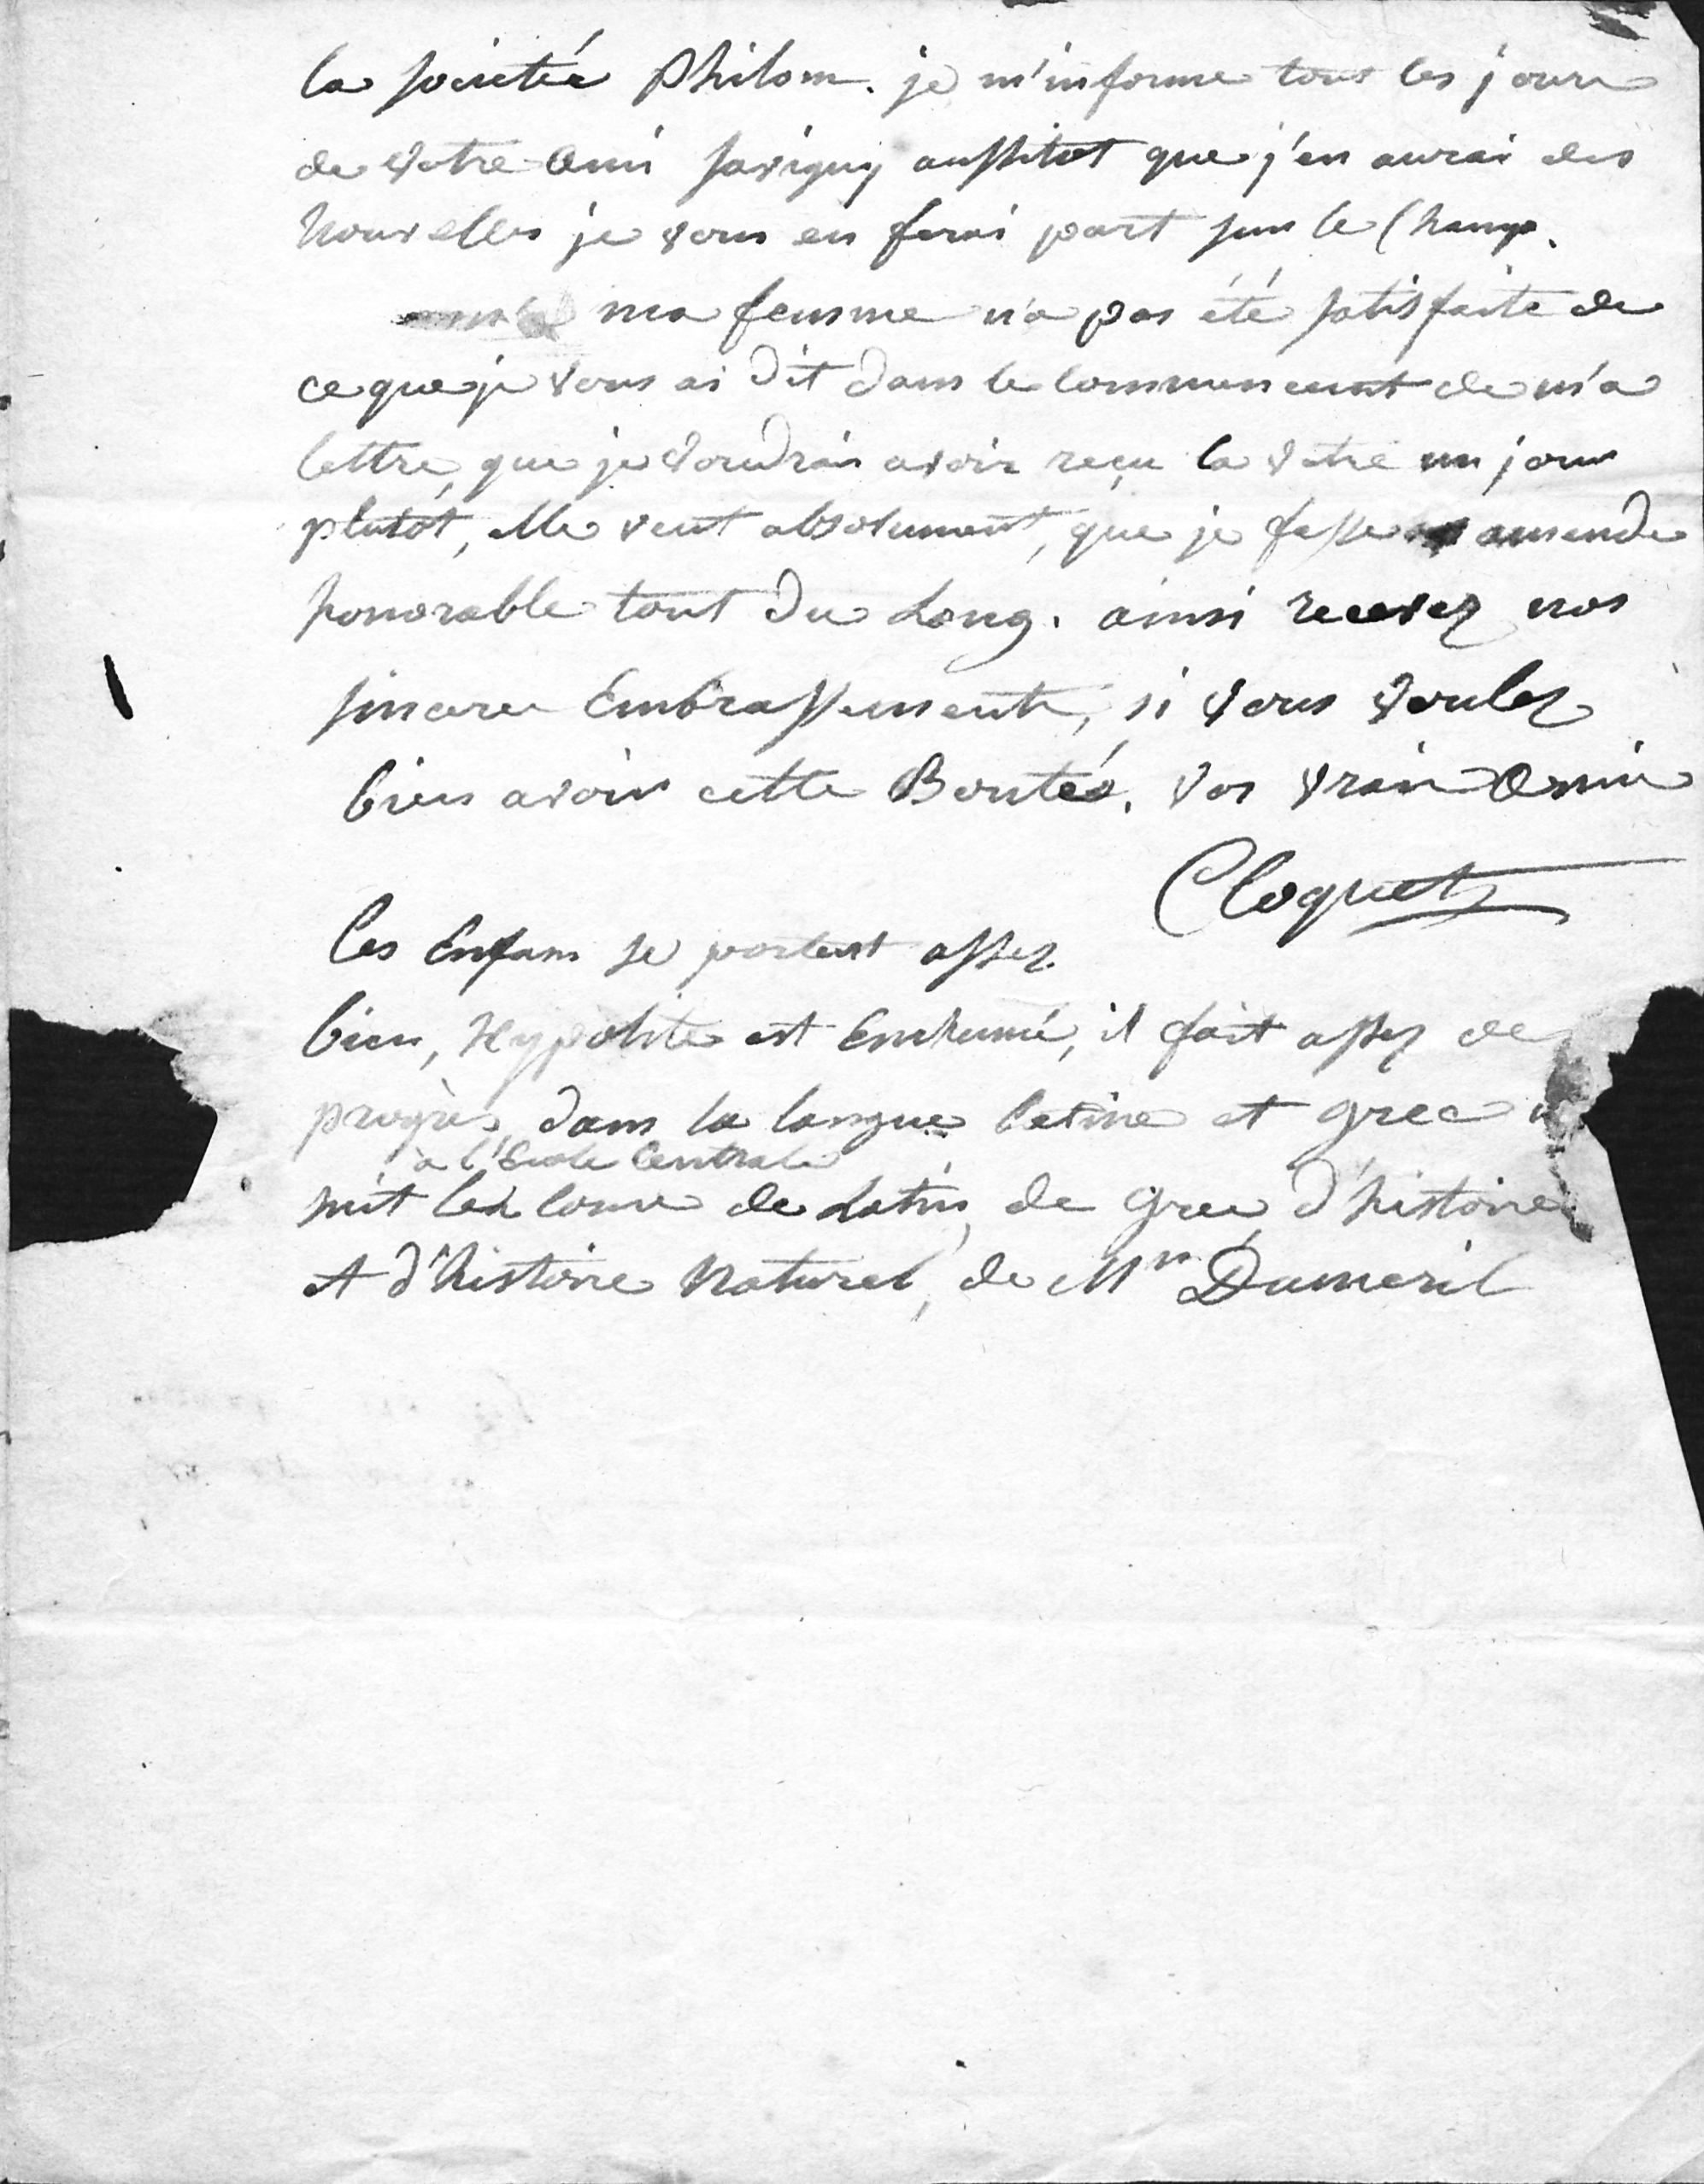 la societée Philom. je m'informe tous les jours
de votre ami savigny aussitot que j'en aurai des
Nouvelles je vous en ferai part sur le Champ.
ma femme n'a pas été satisfaite de
ce que je vous ai dit dans le commencemt de m'a
lettre, que je voudrais avoir reçu la votre un jour
plutôt, elle veut absolument, que je fasse amende
honorable tout du Long. ainsi recevez nos
sinceres Embrassements, si vous voulez
bien avoir cette Bontés. vos vrais amis
Cloquet
les Enfans se portent assez
bien, Hypolite est Enrhumé, il fait assez de
progrès, dans la langue latine et grec
à l'Ecole Centrale
suit les cours de Latin, de grec, d'histoire
et d'histoire Naturel, de Mr Dumeril